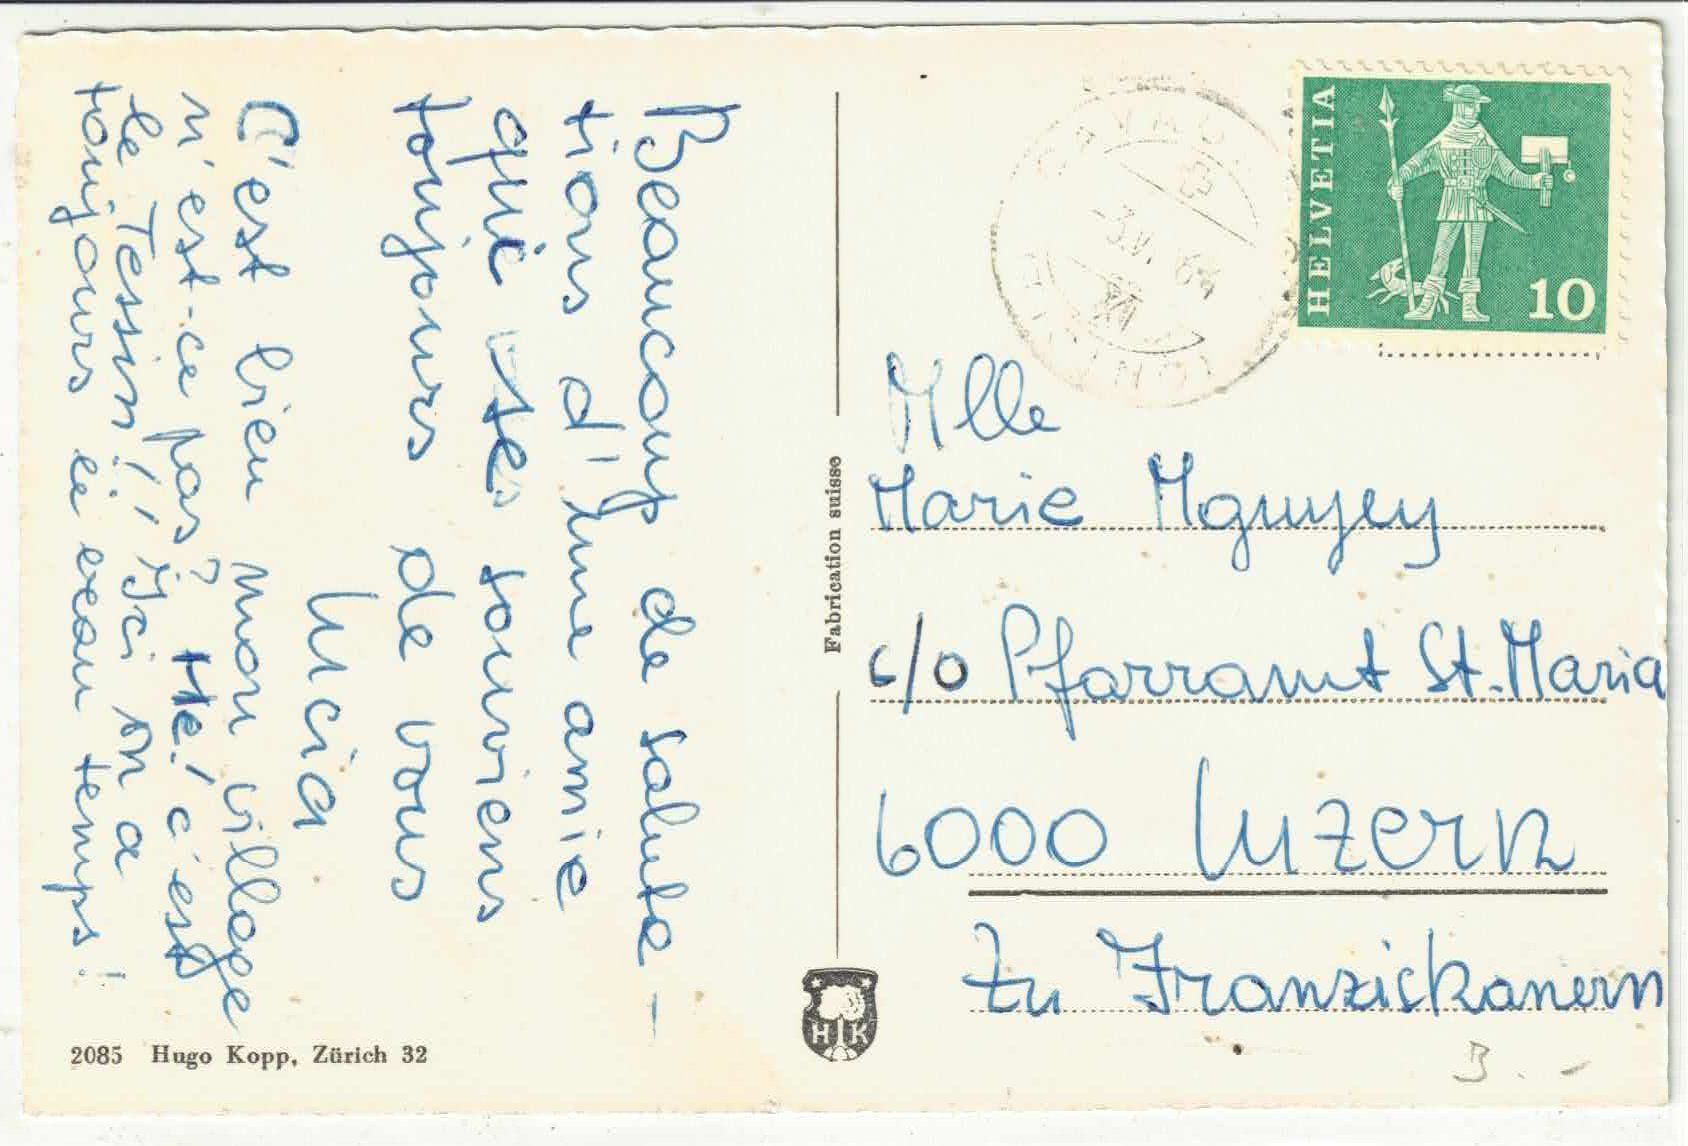 Beaucoup de saluta-
tions d'une amie
qui se souviens
toujours de vous
Lucia
C'est bien mon village
n'est-ce pas? Hé! c'est
le Tessin!! Ici on a
toujours le beau temps!
2085 Hugo Kopp, Zürich 32
Fabrication suisse
HK
HELVETIA
10
-3.V. 64
Mlle
Marie Nguyen
c/o Pfarramt St. Maria
6000 Luzern
Zu Franziskanern
3.-